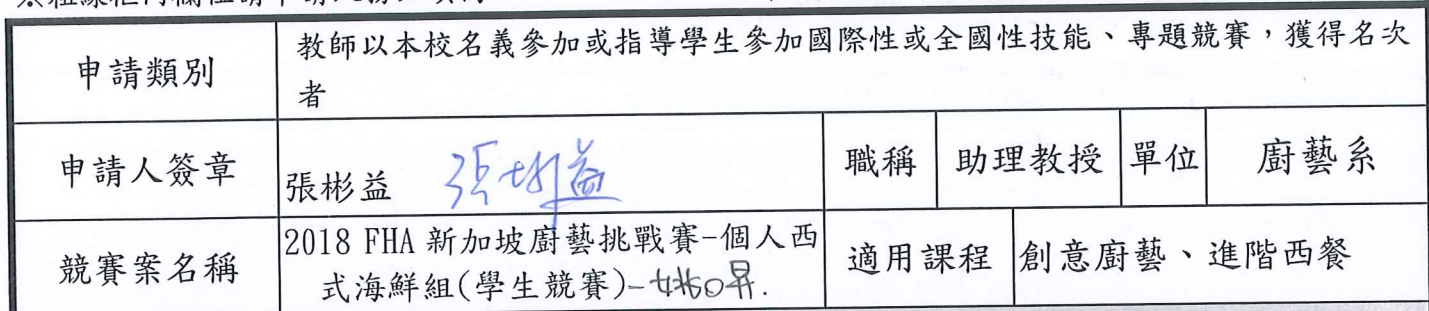 申請類別 教師以本校名義參加或指導學生參加國際性或全國性技能、專題競賽,獲得名次
者
申請人簽章 張彬益 張彬益 職稱 助理教授 單位 廚藝系
競賽案名稱 2018 FHA 新加坡廚藝挑戰賽-個人西
式海鮮組(學生競賽)- 適用課程 創意廚藝、進階西餐